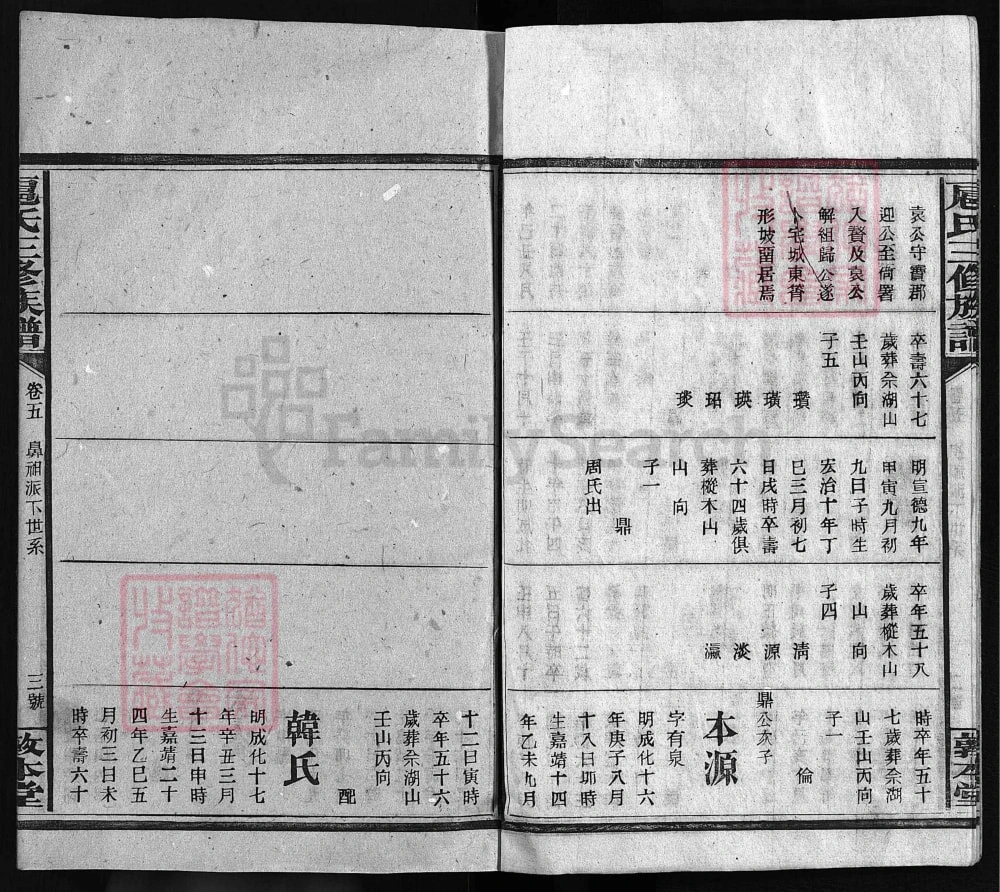 袁公守寶郡
迎公至衙署
入贅及袁公
解組歸公遂
卜宅城東膂
形坡而居焉
卒壽六十七
歲葬佘湖山
壬山丙向
子五
瓚
璜
瑛
玿
琰
明宣德九年
甲寅九月初
九日子時生
宏治十年丁
巳三月初七
日戌時卒壽
六十四歲俱
葬樅木山
山向
子一
鼎
周氏出
卒年五十八
歲葬樅木山
山向
子四
清
源
淡
瀛
時卒年五十
七歲葬佘湖
山壬山丙向
子一
倫
鼎公次子
本源
字有泉
明成化十六
年庚子八月
十八日卯時
生嘉靖十四
年乙未九月
十二日寅時
卒年五十六
歲葬佘湖山
壬山丙向
配
韓氏
明成化十七
年辛丑三月
十三日申時
生嘉靖二十
四年乙巳五
月初三日未
時卒壽六十
氏三修族譜
卷五
鼻祖派下世系
三號
敦本堂
FamilySearch